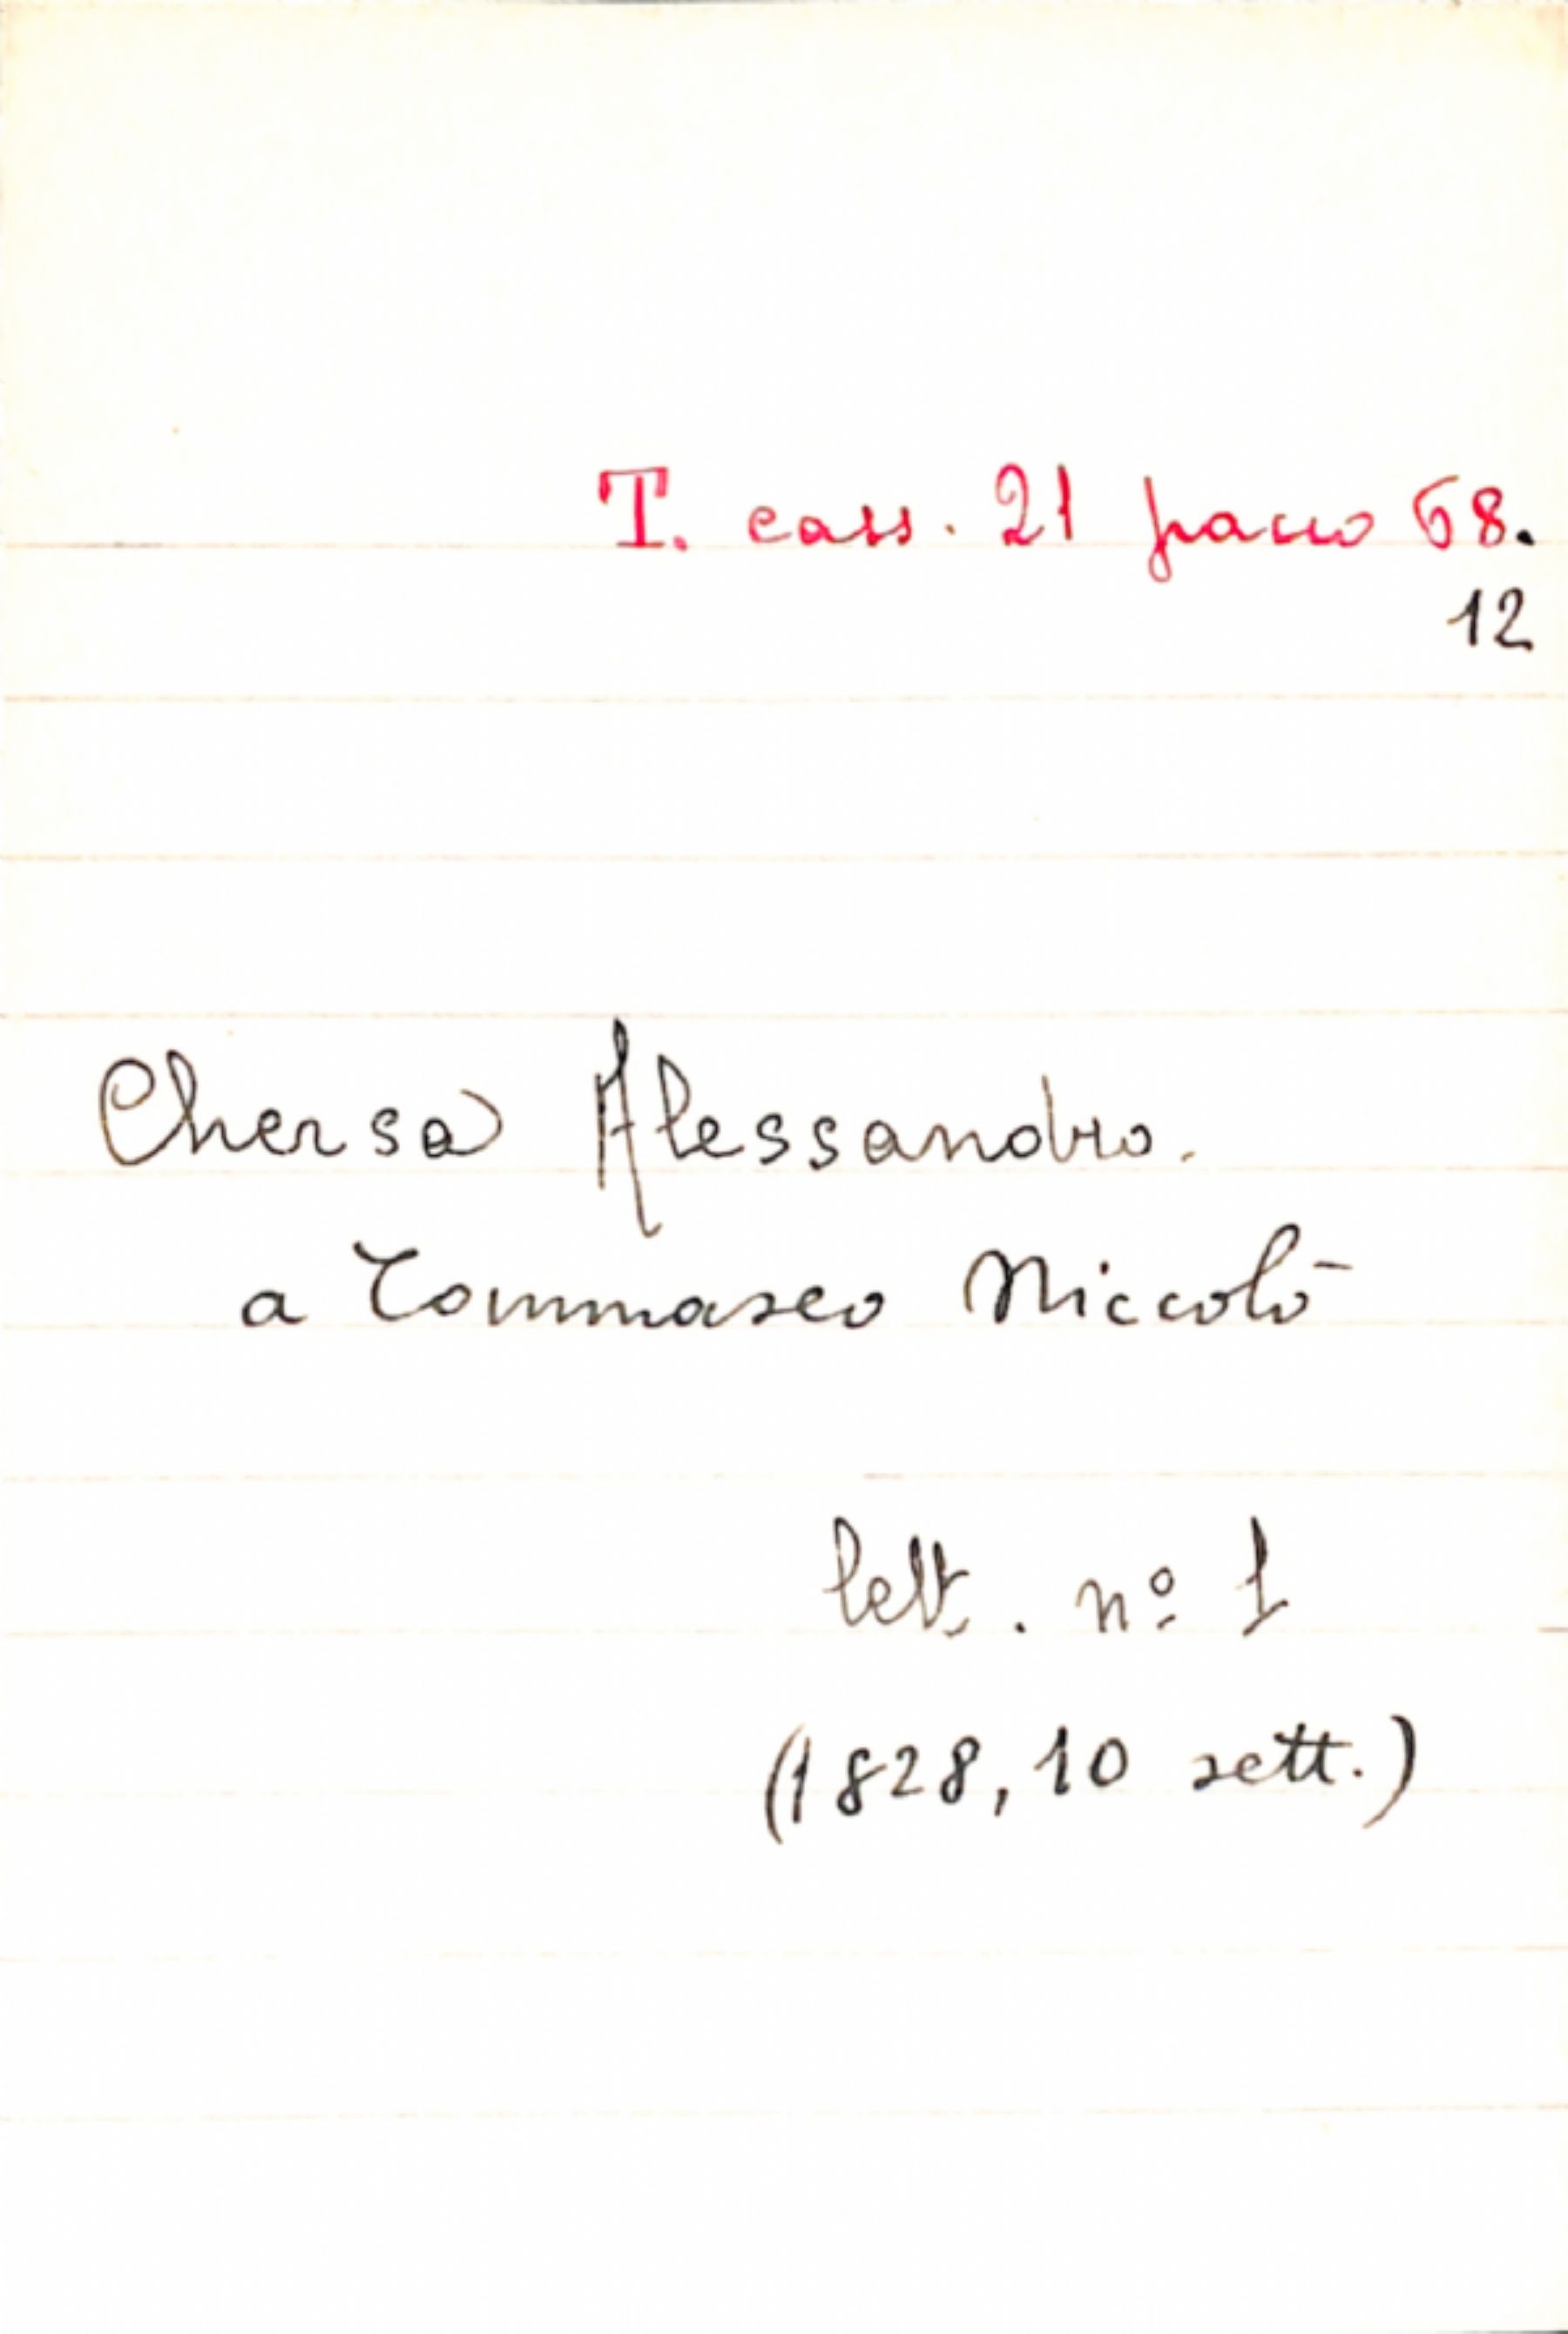 T. cass. 21 pacco 68.
12
Chersa Alessandro.
a Tommaseo Niccolò
lett. nº 1
(1828, 10 sett.)